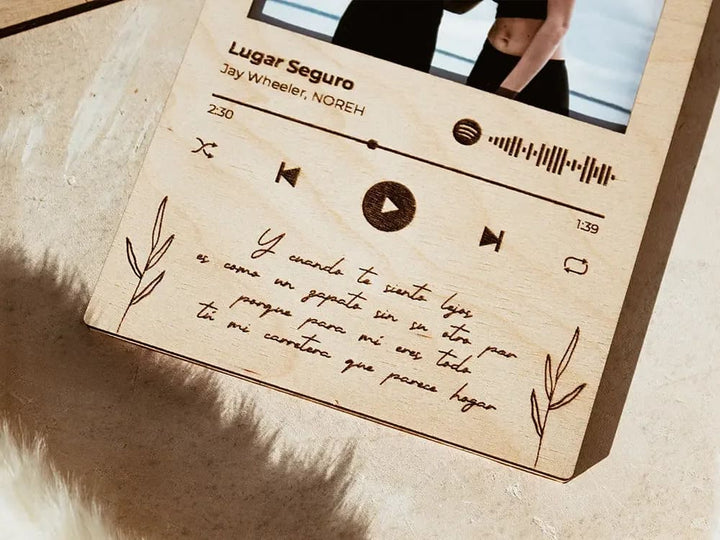 Lugar Seguro
Jay Wheeler, NOREH
2:30
1:39
Y cuando te siento lejos
es como un zapato sin su otro par
porque para mí eres todo
tú mi carretera que parece hogar